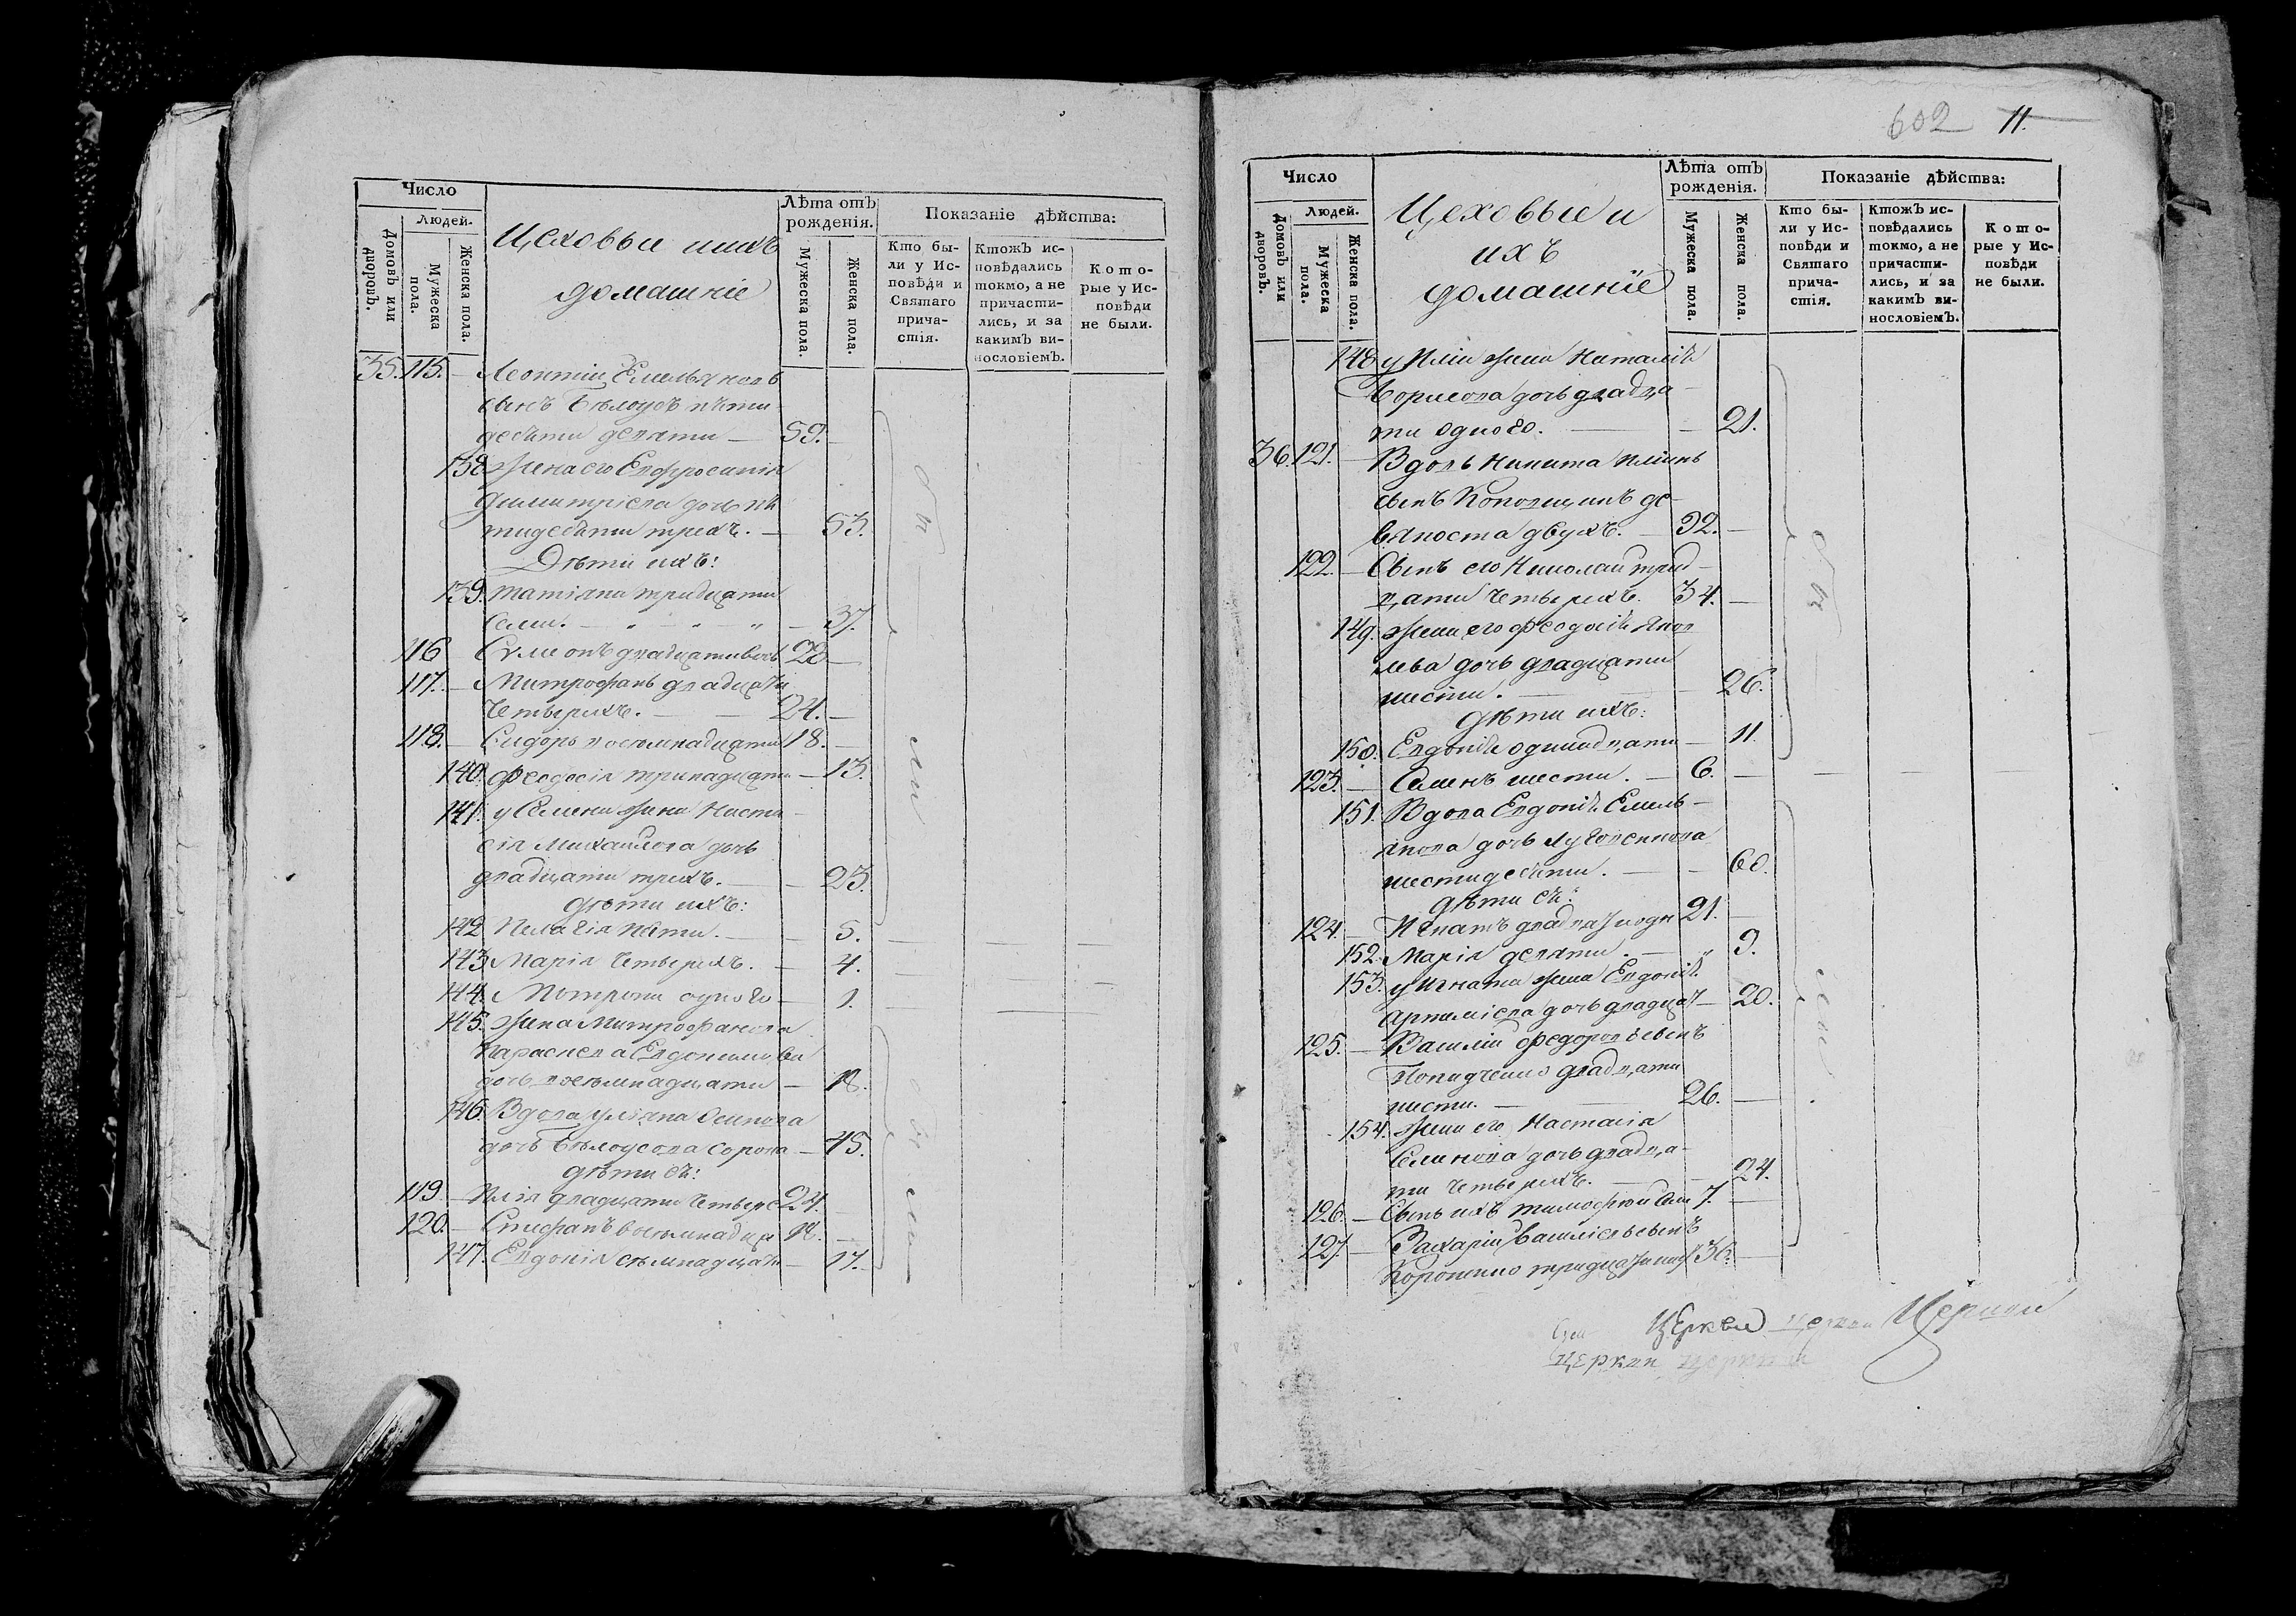 Число
Лѣта отъ рожденія.
Показаніе дѣйства:
Людей.
Домовъ или дворовъ.
Мужеска пола.
Женска пола.
Цеховые и ихъ
домашніе
Мужеска пола.
Женска пола.
Кто бы-
ли у Ис-
повѣди и
Святаго
прича-
стія.
Ктожъ ис-
повѣдались
токмо, а не
причасти-
лись, и за
какимъ ви-
нословіемъ.
Кото-
рые у Ис-
повѣди
не были.
35. 115. Леонтій Емельяновъ
сынъ Бѣлоусъ пяти
десяти девяти — 59.
138. Жена его Евфросинія
Димитріева дочь пя
тидесяти трехъ. — 53.
Дѣти ихъ:
139. Татіяна тридцати
семи. — 37.
116 Сѵмеонъ двадцативось 28
117. Митрофанъ двадцати
четырехъ. — 24.
118. Сидоръ восемнадцати 18.
140. Феодосія тринадцати — 13.
141. у Семена жена Наста
сія Михайлова дочь
двадцати трехъ. — 23.
дѣти ихъ:
142 Пелагія пяти. — 5.
143. Марія четырехъ. — 4.
144. Матрона одного — 1.
145. Жена Митрофанова
Параскева Евдокимова
дочь восемнадцати — 18.
146. Вдова Ульяна Осипова
дочь Бѣлоусова сорока — 45.
дѣти еѣ:
119. Илія двадцати четыре 24.
120. Стефанъ восемнадца 18.
147. Евдокія семнадцати — 17.
были
были
602 11.
Число
Лѣта отъ
рожденія.
Показаніе дѣйства:
Людей.
Домовъ или дворовъ.
Мужеска пола.
Женска пола.
Цеховые и
ихъ
домашніе
Мужеска пола.
Женска пола.
Кто бы-
ли у Ис-
повѣди и
Святаго
прича-
стія.
Ктожъ ис-
повѣдались
токмо, а не
причасти-
лись, и за
какимъ ви-
нословіемъ.
Кото-
рые у Ис-
повѣди
не были.
148. у Иліи жена Наталія
Борисова дочь двадца-
ти одного. — 21.
36. 121. Вдовъ Никита Иліинъ
сынъ де-
вяноста двухъ. — 92.
122. Сынъ его Николай трид-
цати четырехъ. 34.
149. Жена его Феодосія Яков
лева дочь двадцати
шести. — 26.
дѣти ихъ:
150. Евдокія одинадцати — 11.
123. Семенъ шести. — 6.
151. Вдова Евдокія Емель-
янова дочь
шестидесяти. — 60.
дѣти еѣ:
124. Игнатъ двадцати одн 21.
152. Марія девяти. — 9.
153. у Игната жена Евдокія
Артеміева дочь двадцат — 20.
125. Василій Федоровъ сынъ
двадцати
шести. — 26.
154. Жена его Настасія
Семенова дочь двадца-
ти четырехъ. — 24.
126. Сынъ ихъ Тимофей сем 7.
127. Захарій Васильевъ сынъ
тридцати шест 36.
были
были
Церкви Церкви Церкви
Церкви Церкви